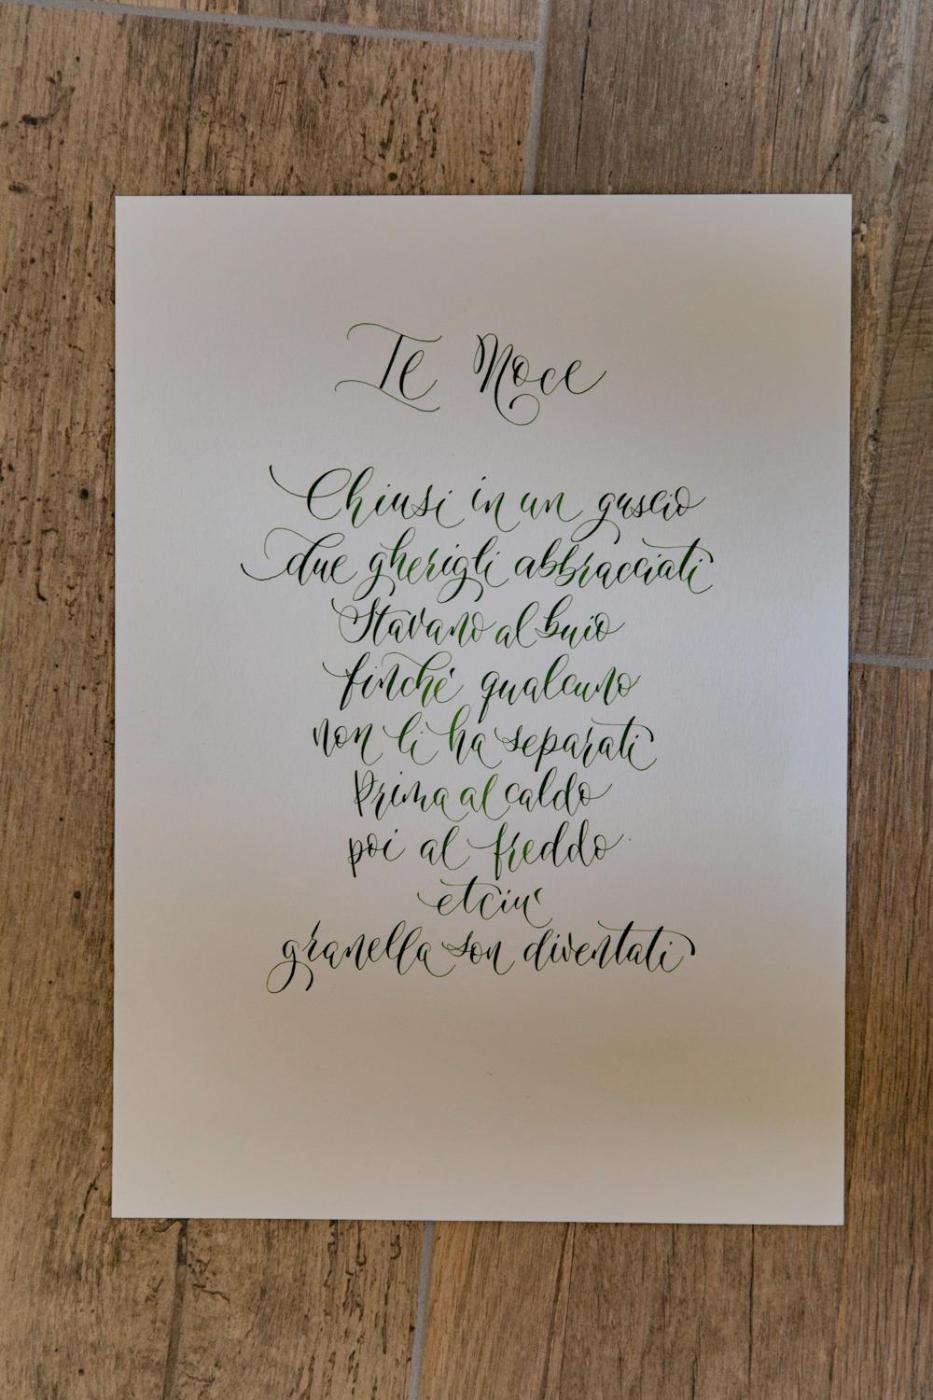 Te Noce
Chiusi in un guscio
due gherigli abbracciati
Stavano al buio
finché qualcuno
non li ha separati
Prima al caldo
poi al freddo
etciù
granella son diventati